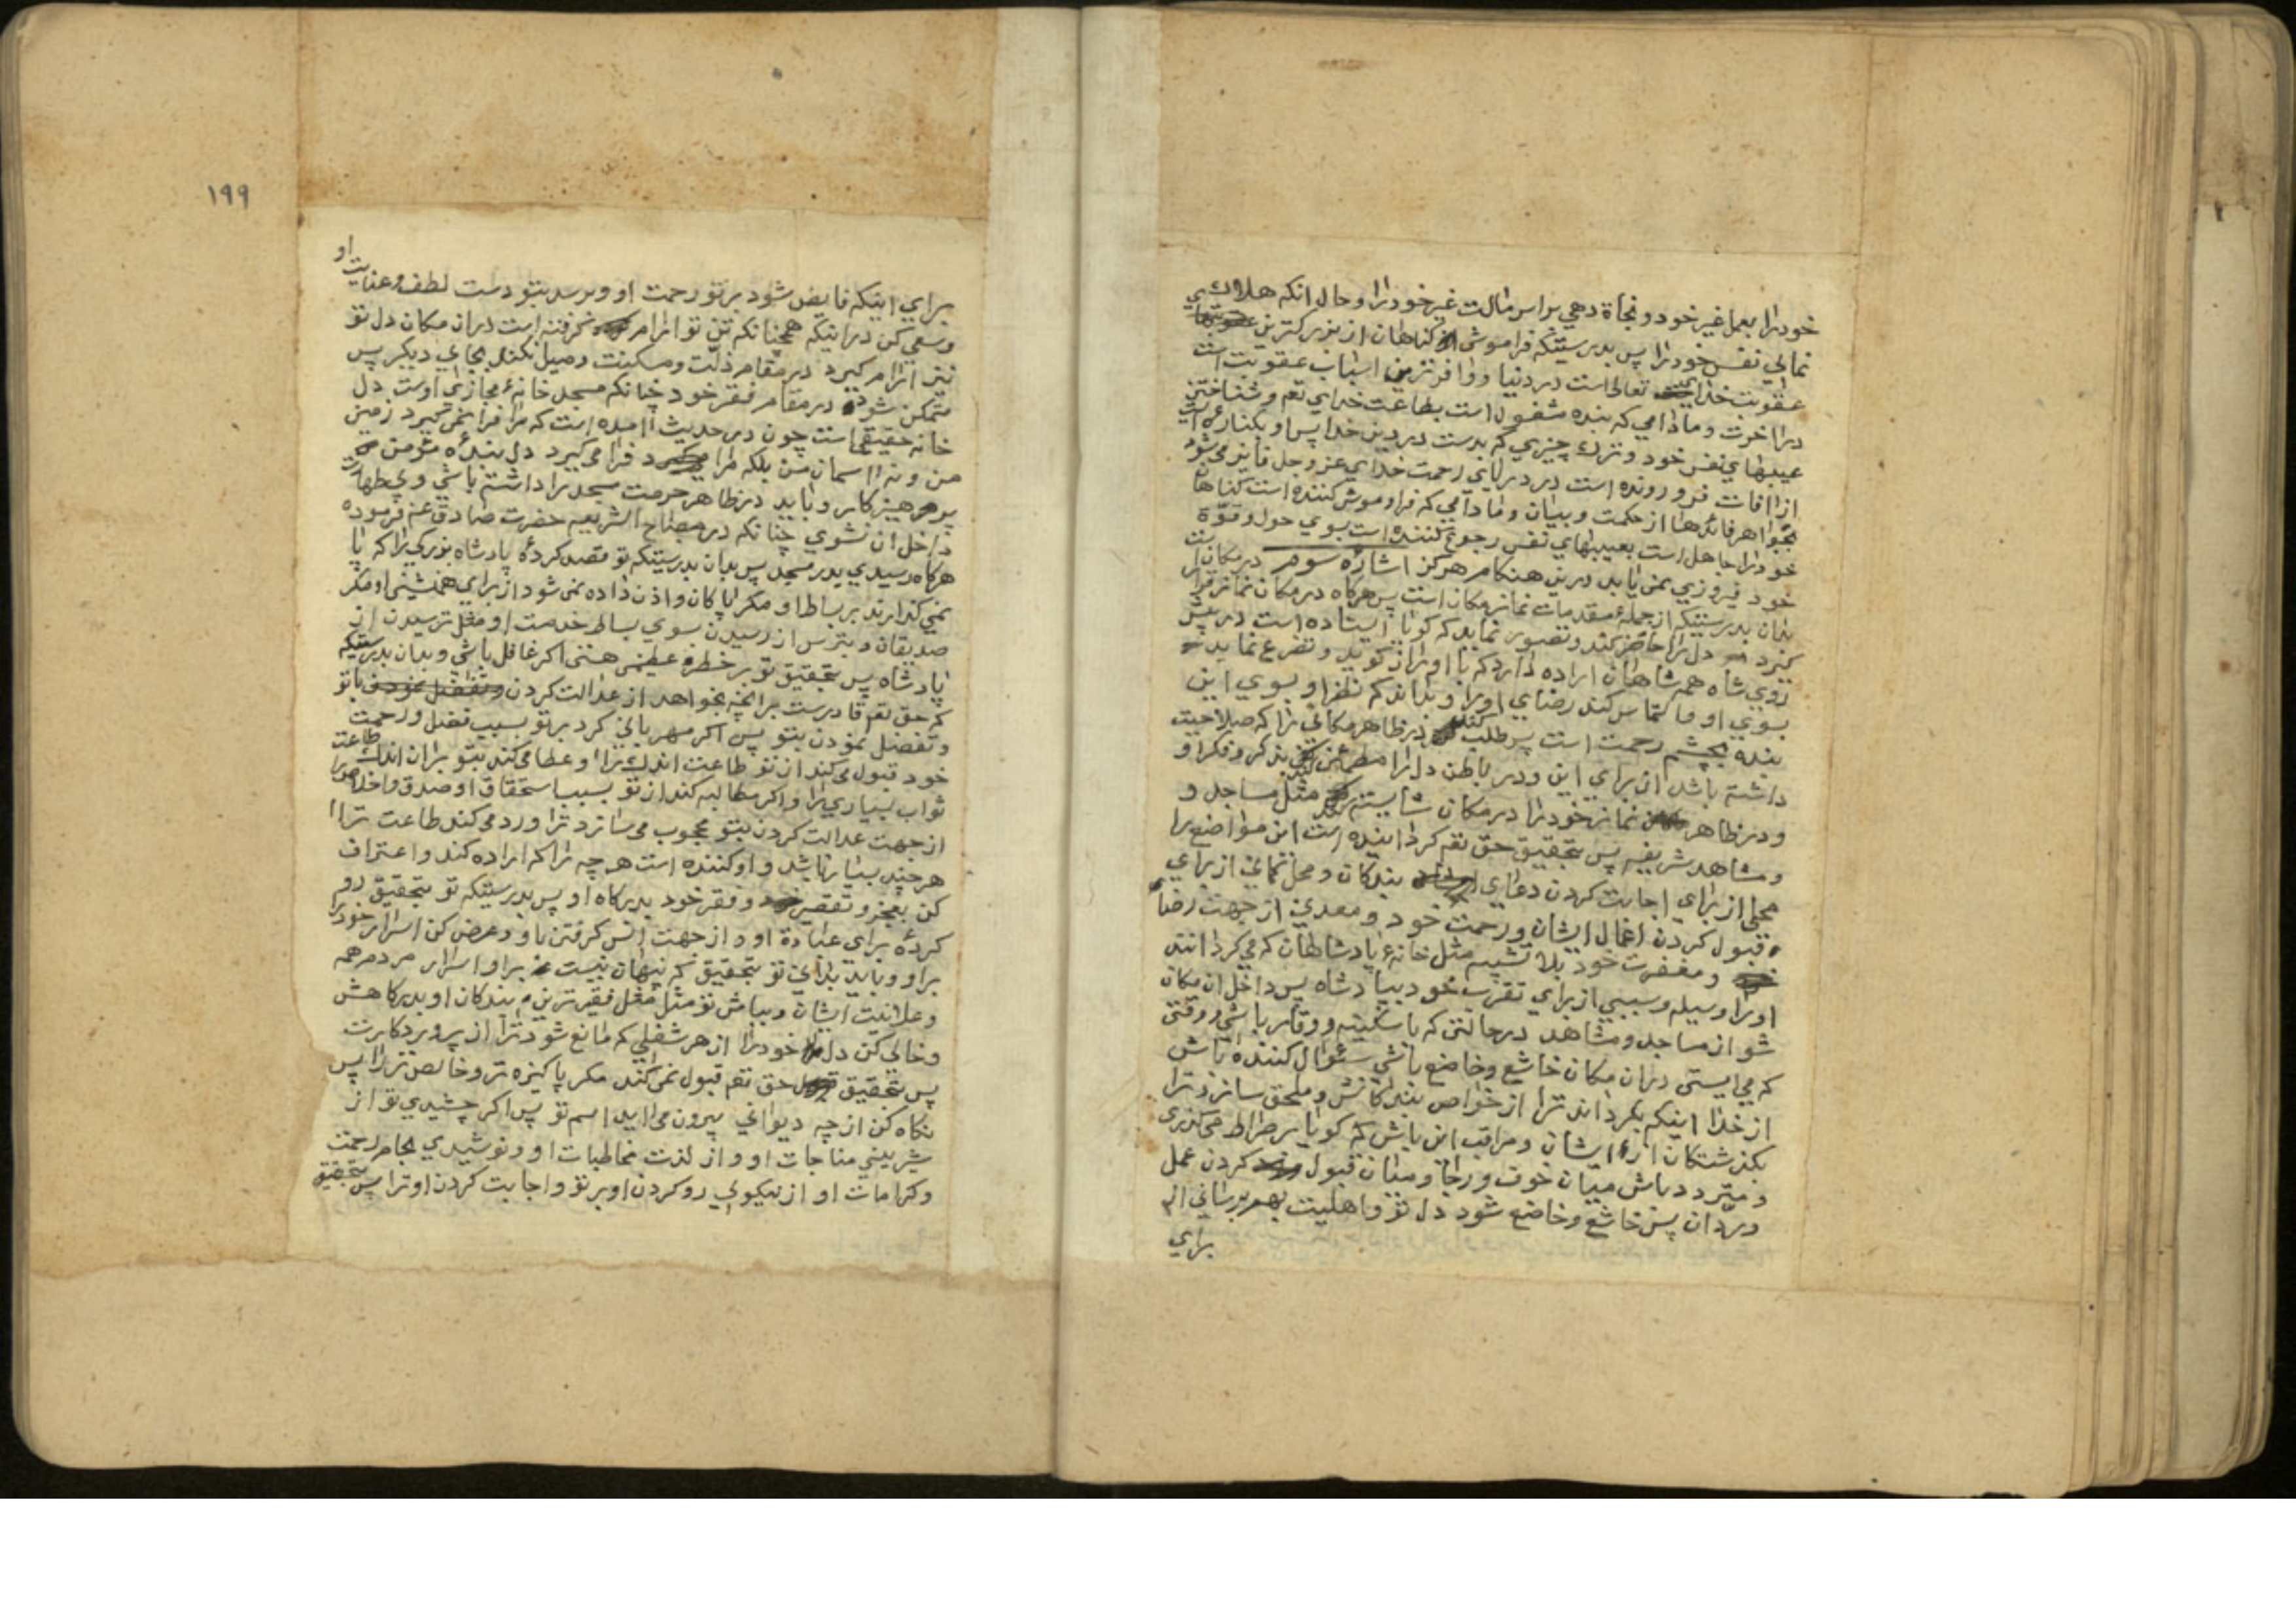 خود را بعمل غیر خود و نجاة دهی براس مالت غیر خود را و حال انکه هلاک
نمائی نفس خود را پس بدرستیکه فراموشی کناهان از بزرکترین عقوبتهای
عقوبت خدای تعالی است در دنیا و وافرترین اسباب عقوبت است
در اخرت و مادامی که بنده مشغول است بطاعت خدای تعم و شناختن
عیبهای نفس خود و ترک چیزی که بدست در دین خدا پس او بکناره است
از افات فرو رونده است در دریای رحمت خدای عز و جل فایز می شود
بجواهر فائدها از حکمت و بیان و مادامی که فراموش کننده است کناهان
خود را جاهل است بعیبهای نفس رجوع کننده است بسوی حول و قوة
خود فیروزی نمی یابد درین هنکام هرکز اشاره سوم در مکان است
بدان بدرستیکه از جملۀ مقدمات نماز مکان است پس هرکاه در مکان نماز قرار
کیرد دل را حاضر کند و تصویر نماید که کویا ایستاده است در پیش
روی شاه همه شاهان اراده دارد که با او راز کوید و تضرع نماید
بسوی او و التماس کند رضای او را و بداند که نظر او بسوی این
بنده بچشم رحمت است پس طلب کند در ظاهر مکانی را که صلاحیت
داشته باشد از برای این و در باطن دل را مطمئن کند بذکر و فکر او
و در ظاهر نماز خود را در مکان شایسته کند مثل مساجد و
و مشاهد شریفه پس بتحقیق حق تعم کردانیده است این مواضع را
محلی از برای اجابت کردن دعای بندکان و محل نمائی از برای
قبول کردن اعمال ایشان و رحمت خود و معدنی از جهت رضا
و مغفرت خود بلا تشبیه مثل خانۀ پادشاهان که می کردانند
او را وسیله و سببی از برای تقرب خود بپادشاه پس داخل ان مکان
شو از مساجد و مشاهد در حالتی که با سکینه و وقار باشی و وقتی
که می ایستی در ان مکان خاشع و خاضع باشی سئوال کننده باش
از خدا اینکه بکرداند ترا از خواص بندکانش و ملحق سازد ترا
بکذشتکان از ایشان و مراقب این باش که کویا بر صراط می کذری
و متردد باش میان خوف و رجا و میان قبول کردن عمل
و رد ان پس خاشع و خاضع شود دل تو و اهلیت بهم برسانی
برای
١٩٩
برای اینکه فایض شود بر تو رحمت او و برسد بتو دست لطف و عنایت او
و سعی کن در اینکه همچنانکه تن تو ارام کرفته است در ان مکان دل تو
نیز ارام کیرد در مقام ذلت و مسکنت و میل نکند بجای دیکر پس
متمکن شود در مقام فقر خود چنانکه مسجد خانۀ مجازی اوست دل
خانه حقیقی است چون در حدیث امده است که مرا فرا نمی کیرد زمین
من و نه اسمان من بلکه مرا فرا می کیرد دل بندۀ مؤمن
پرهیزکار و باید در ظاهر حرمت مسجد را داشته باشی و بی طهارت
داخل ان نشوی چنانکه در مصباح الشریعه حضرت صادق عم فرموده
هرکاه رسیدی بدر مسجد پس بدان بدرستیکه تو قصد کردۀ پادشاه بزرکی را که پا
نمی کذارند بر بساط او مکر پاکان و اذن داده نمی شود از برای همنشینی او مکر
صدیقان و بترس از رسیدن بسوی بساط خدمت او مثل ترسیدن از
پادشاه پس بتحقیق تو بر خطره عظیمی هستی اکر غافل باشی و بدان بدرستیکه
که حق تعم قادرست برانچه بخواهد از عدالت کردن با تو
و تفضل نمودن بتو پس اکر مهربانی کرد بر تو بسبب فضل و رحمت
خود قبول می کند از تو طاعت اندک را و عطا می کند بتو بر ان اندک طاعت
ثواب بسیاری را و اکر مطالبه کند از تو بسبب استحقاق او صدق و اخلاص را
از جهت عدالت کردن بتو محجوب می سازد ترا و رد می کند طاعت ترا
هر چند بسیار باشد و او کننده است هر چه را که اراده کند و اعتراف
کن بعجز و تقصیر و فقر خود بدرکاه او پس بدرستیکه تو بتحقیق رو
کردۀ برای عبادة او و از جهت انس کرفتن باو و عرض کن اسرار خود را
بر او و باید بدانی تو بتحقیق که پنهان نیست بر او اسرار مردم همه
و علانیت ایشان و بباش تو مثل فقیرترین بندکان او بدرکاهش
و خالی کن دل خود را از هر شغلی که مانع شود ترا از پروردکارت
پس بتحقیق حق تعم قبول نمی کند مکر پاکیزه تر و خالص تر را پس
نکاه کن از چه دیوانی بیرون می اید اسم تو پس اکر چشیدی تو از
شیرینی مناجات او و از لذت مخاطبات او و نوشیدی بجام رحمت
و کرامات او از نیکوئی رو کردن او بر تو و اجابت کردن او ترا پس بتحقیق